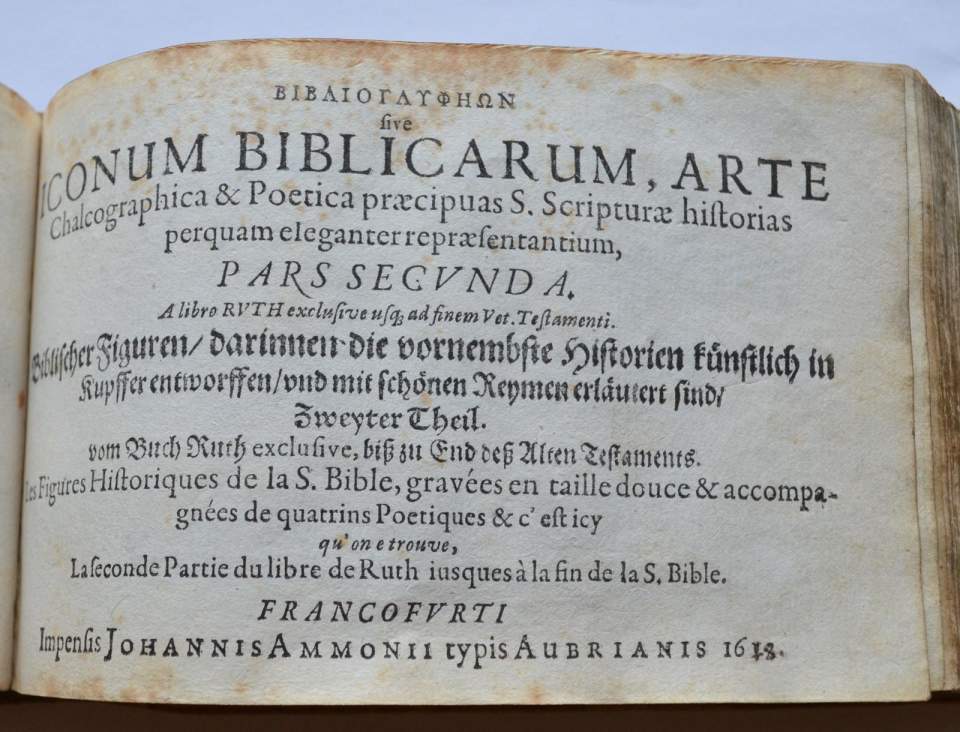 ΒΙΒΛΙΟΓΛΥΦΗΩΝ
ſive
ICONUM BIBLICARUM, ARTE
Chalcographica & Poetica præcipuas S. Scripturæ hiſtorias
perquam eleganter repræſentantium,
PARS SECVNDA.
A libro RVTH excluſive uſq; ad finem Vet. Teſtamenti.
Bibliſcher Figuren/ darinnen die vornembſte Hiſtorien künſtlich in
Kupffer entworffen/ vnd mit ſchönen Reymen erläutert ſind/
Zweyter Theil.
vom Buch Ruth excluſive, biß zu End deß Alten Teſtaments.
Les Figures Hiſtoriques de la S. Bible, gravées en taille douce & accompa-
gnées de quatrins Poetiques & c' eſt icy
qu' on e trouve,
La ſeconde Partie du libre de Ruth iusques à la fin de la S. Bible.
FRANCOFVRTI
Impenſis JOHANNIS AMMONII typis AUBRIANIS